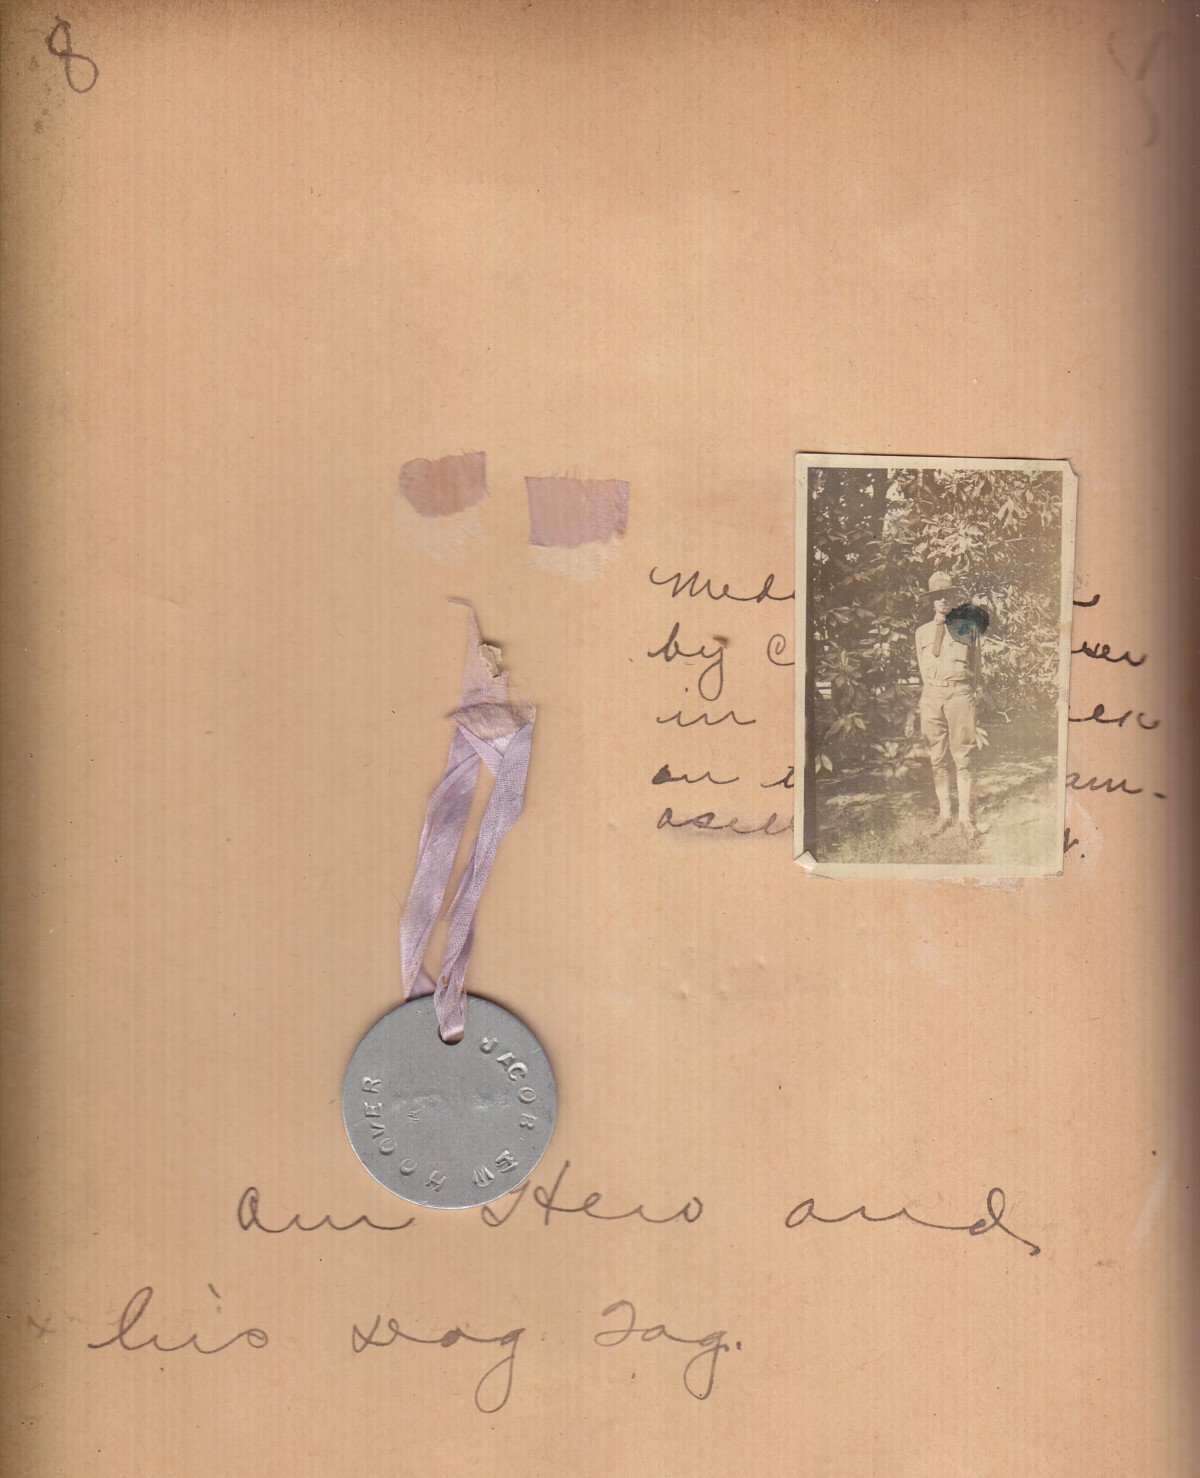 8
Med
by C
in
on t am-
JACOB W HOOVER
Our Hero and
his Dog Tag.